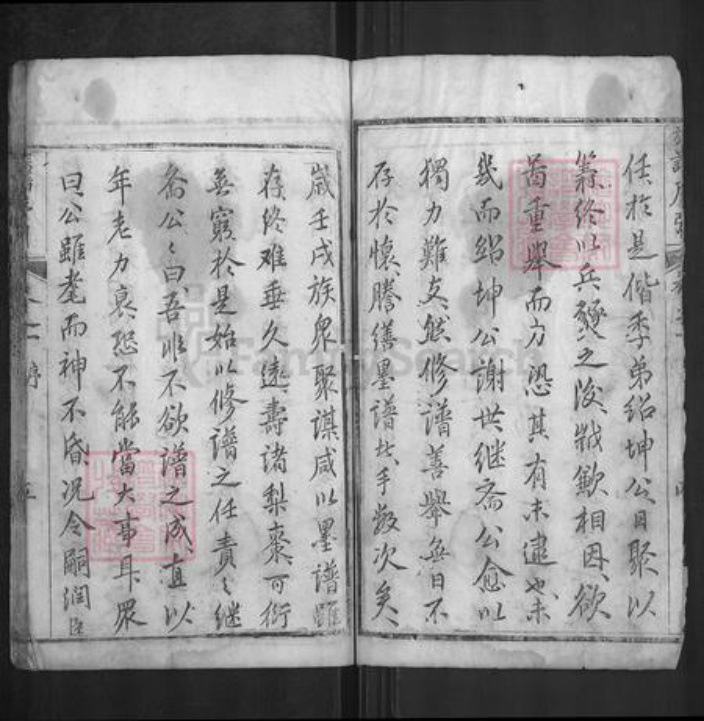 任於是偕季弟绍坤公日聚以
籌终以兵燹之後戕歉相因欲
啚重舉而方恐其有未逮也未
幾而绍坤公謝世继斋公愈以
獨力難支然修譜善舉無日不
存於懷謄缮墨譜此手数次矣
歲壬戌族衆聚謀咸以墨譜雖
存终难垂久遠壽诸梨棗可衍
無窮於是始以修譜之任責之继
斋公公曰吾非不欲譜之成直以
年老力衰恐不能當大事耳眾
曰公雖耄而神不昏况令嗣润臣
序
FamilySearch